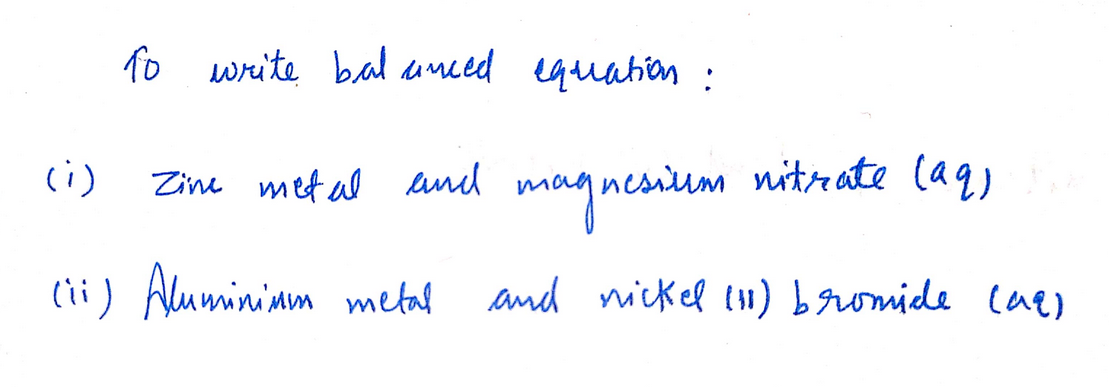 To write balanced equation :
(i) Zinc metal and magnesium nitrate (aq)
(ii) Aluminium metal and nickel (II) bromide (aq)